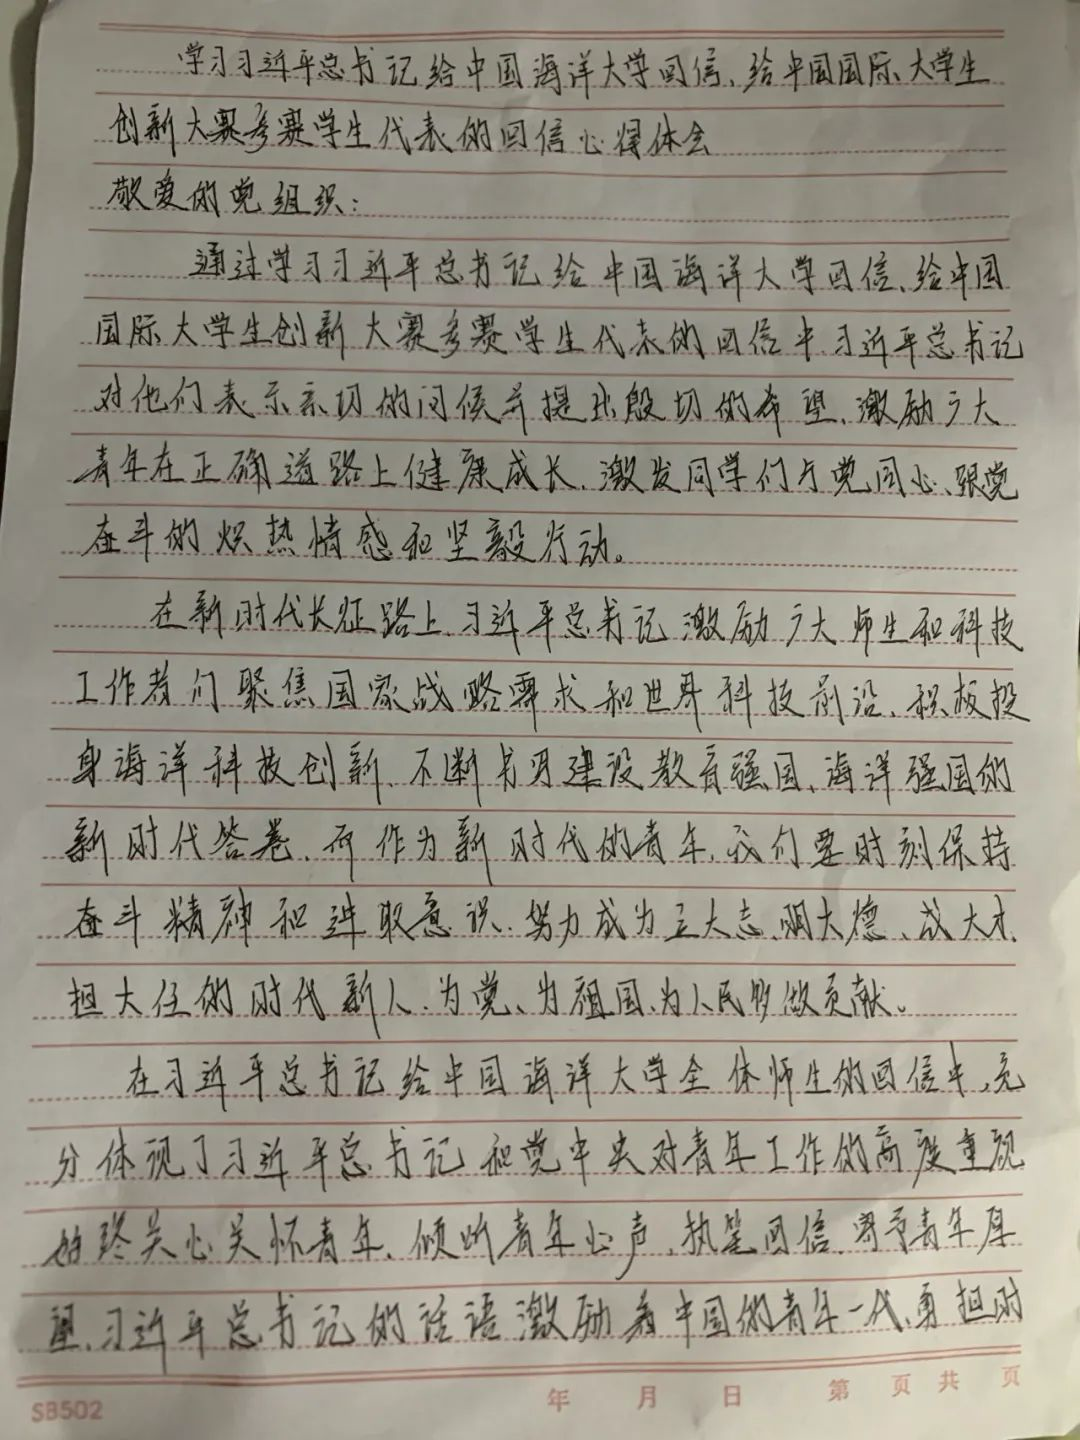 学习习近平总书记给中国海洋大学回信、给中国国际大学生
创新大赛参赛学生代表的回信心得体会
敬爱的党组织：
通过学习习近平总书记给中国海洋大学回信、给中国
国际大学生创新大赛参赛学生代表的回信中，习近平总书记
对他们表示亲切的问候并提出殷切的希望，激励广大
青年在正确道路上健康成长，激发同学们与党同心、跟党
奋斗的炽热情感和坚毅行动。
在新时代长征路上，习近平总书记激励广大师生和科技
工作者们聚焦国家战略需求和世界科技前沿，积极投
身海洋科技创新，不断书写建设教育强国、海洋强国的
新时代答卷，而作为新时代的青年，我们要时刻保持
奋斗精神和进取意识，努力成为立大志、明大德、成大才、
担大任的时代新人，为党、为祖国、为人民多做贡献。
在习近平总书记给中国海洋大学全体师生的回信中，充
分体现了习近平总书记和党中央对青年工作的高度重视
始终关心关怀青年，倾听青年心声，执笔回信，寄予青年厚
望，习近平总书记的话语激励着中国的青年一代，勇担时
SB502
年 月 日 第 页 共 页